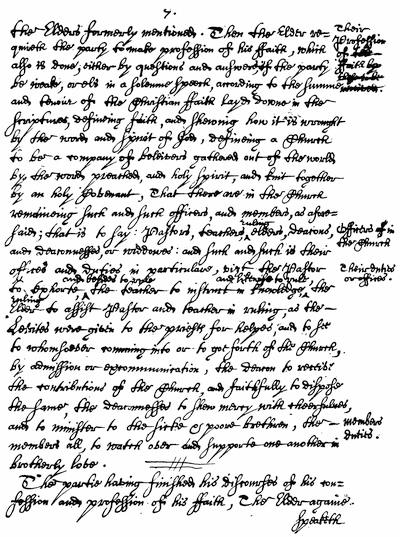 7.
the Elders formerly mentioned. Then the Elder re-
quireth the party to make profession of his ffaith, which
Their
Profession
of
ffaith
also is done, either by questions and aunswers if the party
be weake, or els in a solemne speech, according to the summe
and tenour of the Christian ffaith layd downe in the
Scriptures, defineing faith, and shewing how it is wrought
by the word and Spirit of God, defineing a Church
to be a company of beleivers gathered out of the world
by the word preached, and holy Spirit, and knit together
by an holy Covenant, That there are in the Church
remaineing such and such officers, and members, as afore-
said; that is to say: Pastors, teachers, ruling elders, deacons,
Officers of in
the Church
and deaconnesses, or widowes: and such and such is their
offices and duties in particulare, vizt the Pastor
Their duties
or offices.
to exhorte, and besides to rule the teacher to instruct in knowledge, and likewise to rule the
ruling Elder to assist Pastor and teacher in ruling, as the
Levites were given to the priests for helpes, and to see
to whomsoever comming into or to goe forth of the Church,
by admission or excommunication, the deacon to receive
the contributions of the Church, and faithfully to dispose
the same, the deaconnesses to shew mercy with cheerfulnes,
and to minister to the sicke & poore brethren, the
members
duties.
members all, to watch over and supporte one another in
brotherly love.
The partie having finished his discourses of his con-
fession and profession of his ffaith, The Elder againe.
speaketh